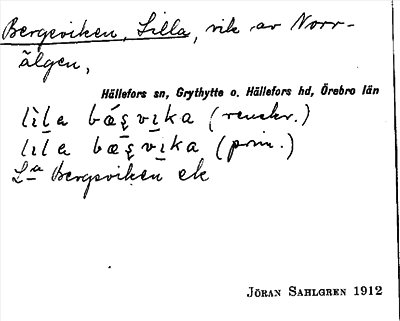 Bergsviken, Lilla, vik av Norr-
älgen,
Hällefors sn, Grythytte o. Hällefors hd, Örebro län
lìla bǽsvika (renskr.)
lila bæsvika (prim.)
La Bergsviken ek
JÖRAN SAHLGREN 1912